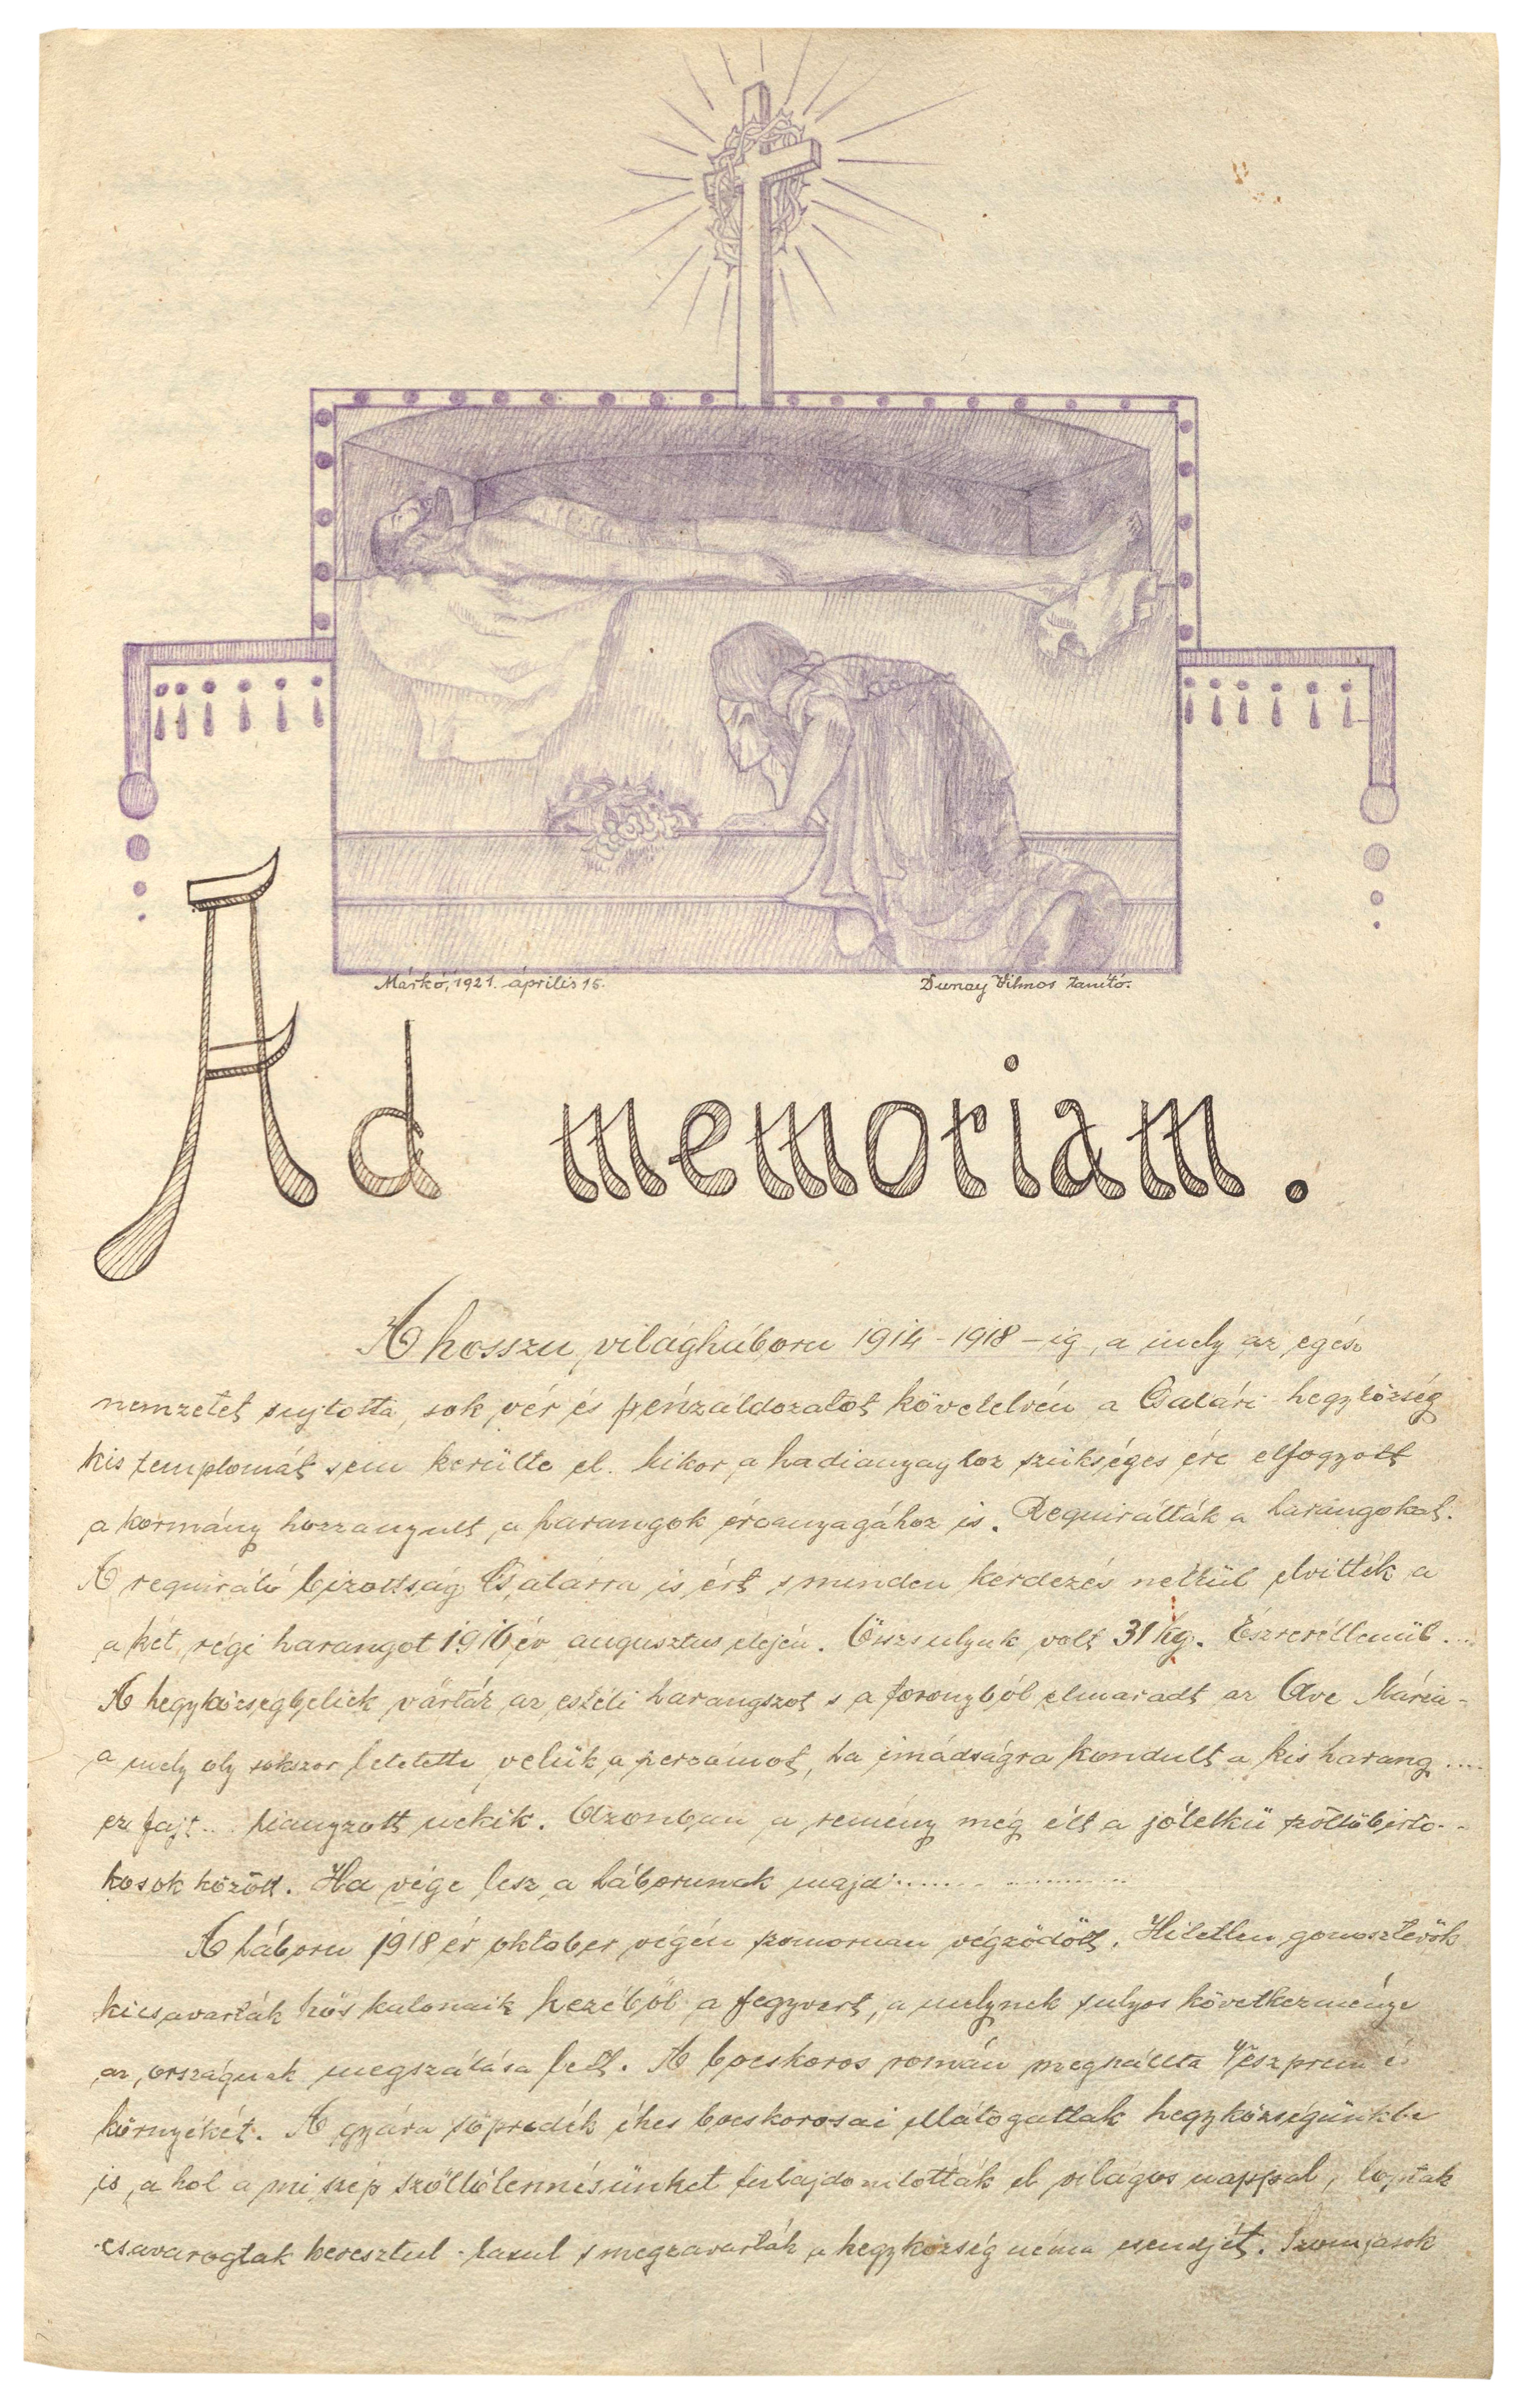 Márkó, 1921. április 15.
Dunay Vilmos tanító.
Ad memoriam.
A hosszu világháboru 1914-1918-ig, a mely az egész
nemzetet sujtotta, sok vér és pénzáldozatot követelvén a Csatári hegyközség
kis templomát sem kerülte el. Mikor a hadianyaghoz szükséges érc elfogyott
a kormány hozzanyult a harangok ércanyagához is. Requirálták a harangokat.
A requiráló bizottság Csatárra is ért s minden kérdezés nélkül elvitték a
a két régi harangot 1916 év augusztus elején. Összsulyuk volt 31 kg. Észrevétlenül....
A hegyközségbeliek várták az estéli harangszot s a toronyból elmaradt az Ave Mária -
a mely oly sokszor letetette velük a , ha imádságra kondult a kis harang ....
ez fajt... hianyzott nekik. Azonban a remény még élt a jólelkü szöllöbirto-
kosok között. Ha vége lesz a háborunak majd ...............
A háboru 1918 év oktober végén szomoruan végzödött. Hitetlen gonosztevök
kicsavarták hös katonaik kezéböl a fegyvert, a melynek sulyos következménye
az országnak megszálása lett. A bocskoros román megszállta Veszprém és
környékét. A gyáva söpredék éhes bocskorosai ellátogattak hegyközségünkbe
is, a hol a mi szép szöllötermésünket tulajdonitották el világos nappal, loptak
csavarogtak keresztul-kasul s megzavarták a hegyközség néma csendjét. Szomjasok